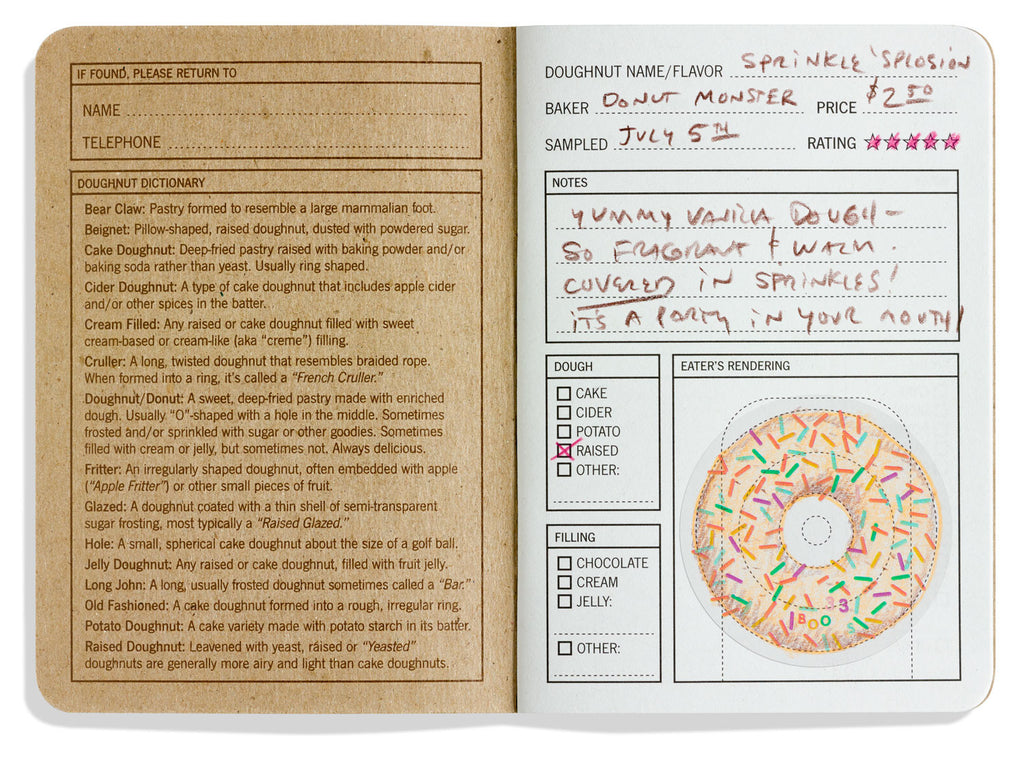 IF FOUND, PLEASE RETURN TO
NAME
TELEPHONE
DOUGHNUT DICTIONARY
Bear Claw: Pastry formed to resemble a large mammalian foot.
Beignet: Pillow-shaped, raised doughnut, dusted with powdered sugar.
Cake Doughnut: Deep-fried pastry raised with baking powder and/or
baking soda rather than yeast. Usually ring shaped.
Cider Doughnut: A type of cake doughnut that includes apple cider
and/or other spices in the batter.
Cream Filled: Any raised or cake doughnut filled with sweet
cream-based or cream-like (aka “creme”) filling.
Cruller: A long, twisted doughnut that resembles braided rope.
When formed into a ring, it’s called a “French Cruller.”
Doughnut/Donut: A sweet, deep-fried pastry made with enriched
dough. Usually “O”-shaped with a hole in the middle. Sometimes
frosted and/or sprinkled with sugar or other goodies. Sometimes
filled with cream or jelly, but sometimes not. Always delicious.
Fritter: An irregularly shaped doughnut, often embedded with apple
(“Apple Fritter”) or other small pieces of fruit.
Glazed: A doughnut coated with a thin shell of semi-transparent
sugar frosting, most typically a “Raised Glazed.”
Hole: A small, spherical cake doughnut about the size of a golf ball.
Jelly Doughnut: Any raised or cake doughnut, filled with fruit jelly.
Long John: A long, usually frosted doughnut sometimes called a “Bar.”
Old Fashioned: A cake doughnut formed into a rough, irregular ring.
Potato Doughnut: A cake variety made with potato starch in its batter.
Raised Doughnut: Leavened with yeast, raised or “Yeasted”
doughnuts are generally more airy and light than cake doughnuts.
DOUGHNUT NAME/FLAVOR SPRINKLE 'SPLOSION
BAKER DONUT MONSTER PRICE $2.50
SAMPLED JULY 5TH RATING
NOTES
YUMMY VANILLA DOUGH –
SO FRAGRANT & WARM.
COVERED IN SPRINKLES!
IT'S A PARTY IN YOUR MOUTH!
DOUGH
CAKE
CIDER
POTATO
RAISED
OTHER:
FILLING
CHOCOLATE
CREAM
JELLY:
OTHER:
EATER’S RENDERING
33
BOO